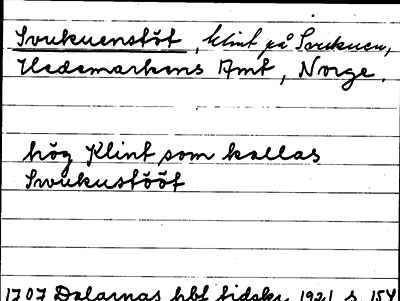 Svukuenstöt, klint på Svukuen,
Hedemarkens Amt, Norge.
hög Klint som kallas
Swukustööt
1707 Dalarnas hbf tidskr 1921 s. 154